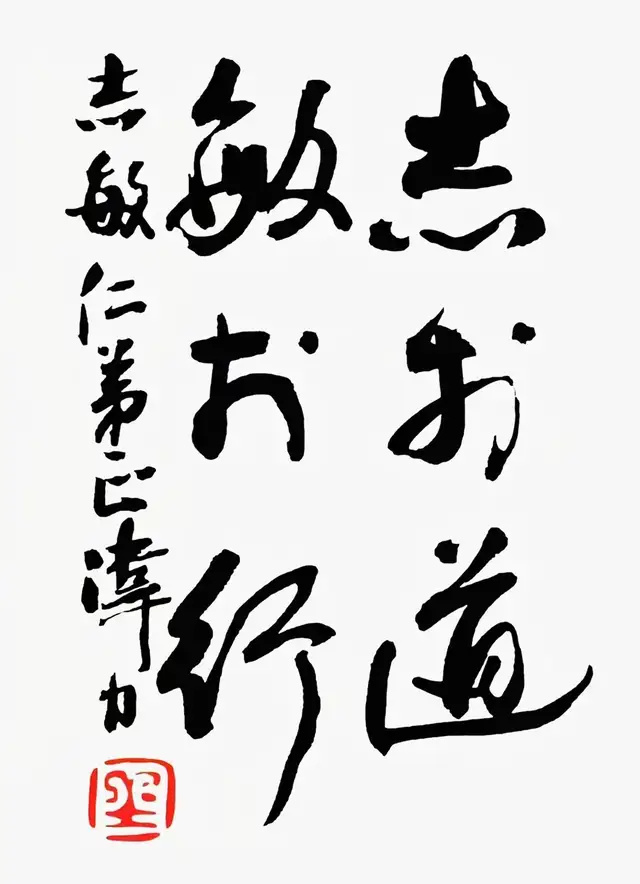 志於道
敏於行
志敏仁弟正